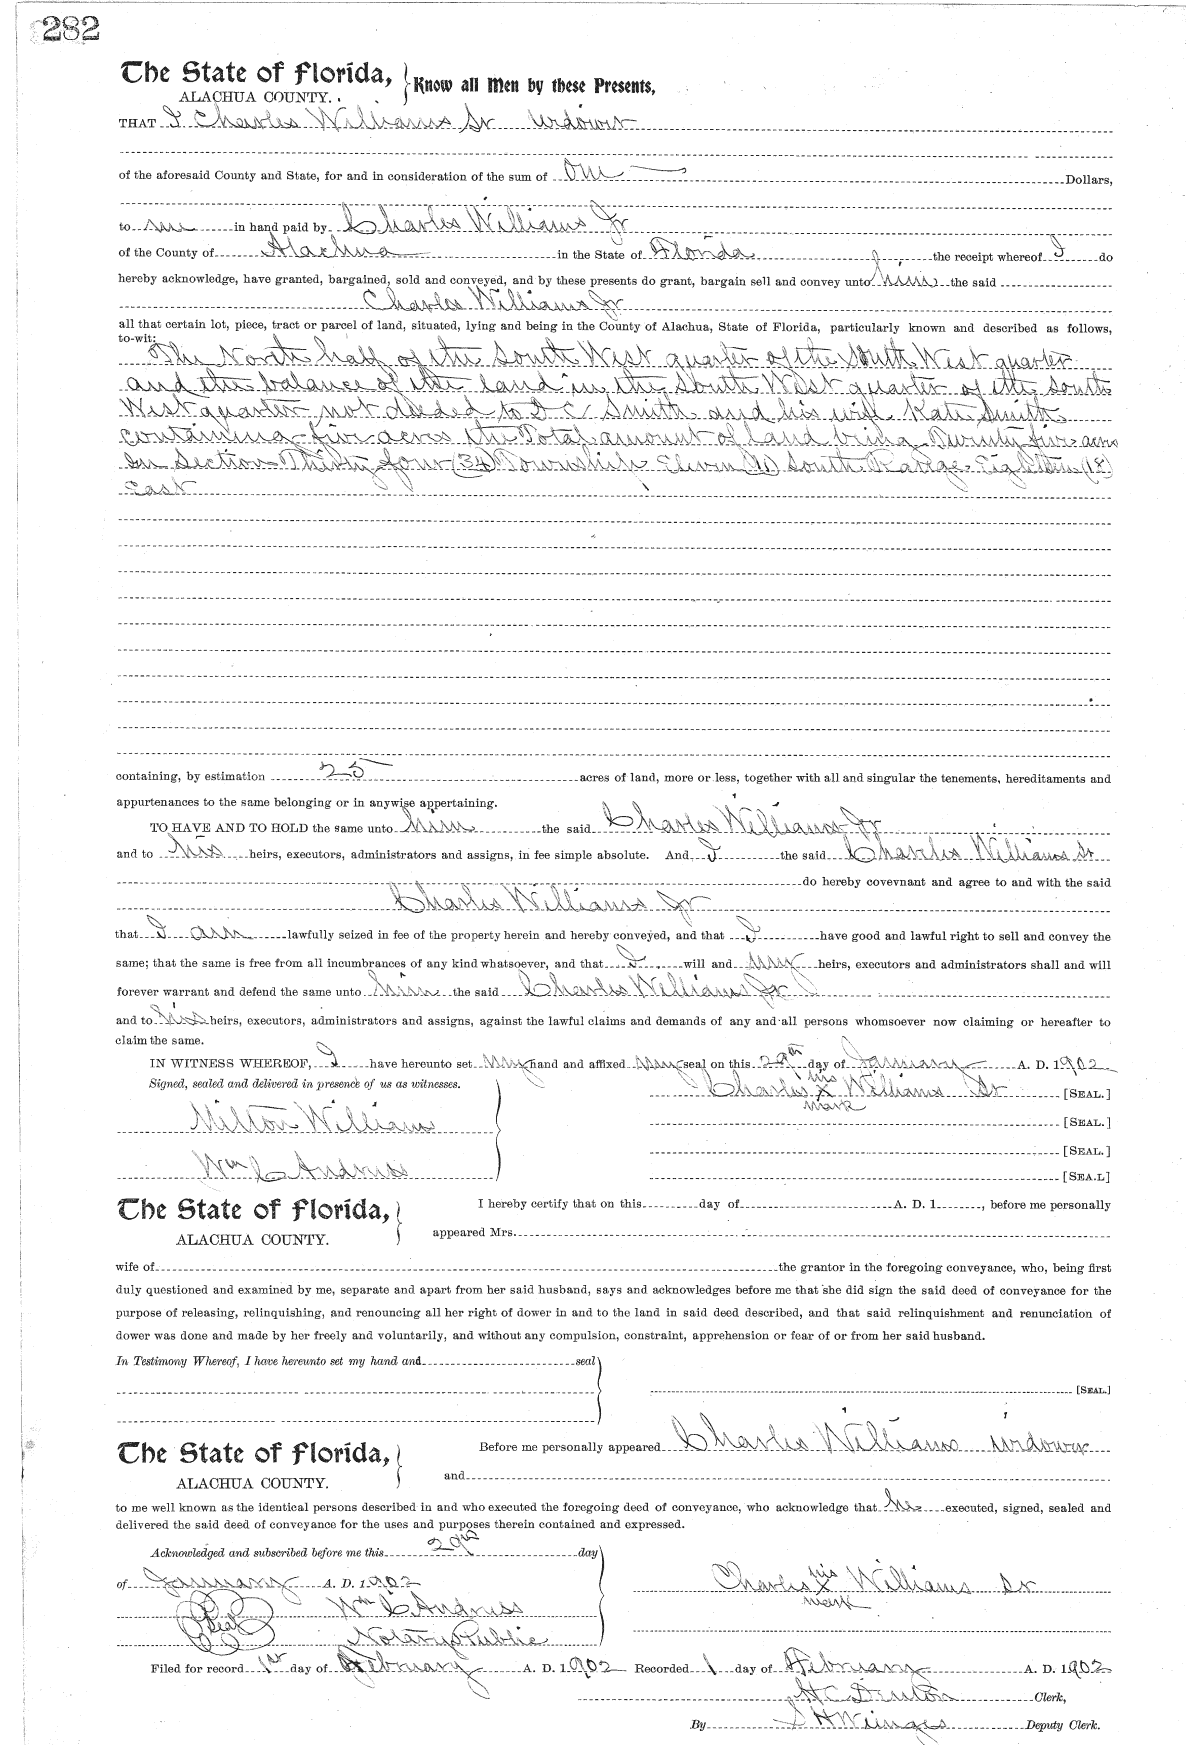 282
The State of Florida, Know all Men by these Presents,
ALACHUA COUNTY.
THAT I Charles Williams Sr widower
of the aforesaid County and State, for and in consideration of the sum of One Dollars,
to me in hand paid by Charles Williams Jr
of the County of Alachua in the State of Florida the receipt whereof I do
hereby acknowledge, have granted, bargained, sold and conveyed, and by these presents do grant, bargain sell and convey unto him the said
Charles Williams Jr
all that certain lot, piece, tract or parcel of land, situated, lying and being in the County of Alachua, State of Florida, particularly known and described as follows,
to-wit:
The North half of the South West quarter of the South West quarter
and the balance of the land in the South West quarter of the South
West quarter not deeded to D C Smith and his wife Kate Smith
containing five acres the Total amount of land being Twenty five acres
In Section Thirty four (34) Township Eleven (11) South Range Eighteen (18)
East
containing, by estimation 25 acres of land, more or less, together with all and singular the tenements, hereditaments and
appurtenances to the same belonging or in anywise appertaining.
TO HAVE AND TO HOLD the same unto him the said Charles Williams Jr
and to his heirs, executors, administrators and assigns, in fee simple absolute. And I the said Charles Williams Sr
do hereby covevnant and agree to and with the said
Charles Williams Jr
that I am lawfully seized in fee of the property herein and hereby conveyed, and that I have good and lawful right to sell and convey the
same; that the same is free from all incumbrances of any kind whatsoever, and that I will and my heirs, executors and administrators shall and will
forever warrant and defend the same unto him the said Charles Williams Jr
and to his heirs, executors, administrators and assigns, against the lawful claims and demands of any and all persons whomsoever now claiming or hereafter to
claim the same.
IN WITNESS WHEREOF, I have hereunto set my hand and affixed my seal on this 29th day of January A. D. 1902
Signed, sealed and delivered in presence of us as witnesses.
Charles his X mark Williams Sr [SEAL.]
Milton Williams [SEAL.]
[SEAL.]
Wm C Andruss [SEA.L]
The State of Florida,
ALACHUA COUNTY.
I hereby certify that on this day of A. D. 1 , before me personally
appeared Mrs.
wife of the grantor in the foregoing conveyance, who, being first
duly questioned and examined by me, separate and apart from her said husband, says and acknowledges before me that she did sign the said deed of conveyance for the
purpose of releasing, relinquishing, and renouncing all her right of dower in and to the land in said deed described, and that said relinquishment and renunciation of
dower was done and made by her freely and voluntarily, and without any compulsion, constraint, apprehension or fear of or from her said husband.
In Testimony Whereof, I have hereunto set my hand and seal
[SEAL.]
The State of Florida,
ALACHUA COUNTY.
Before me personally appeared Charles Williams widower
and
to me well known as the identical persons described in and who executed the foregoing deed of conveyance, who acknowledge that he executed, signed, sealed and
delivered the said deed of conveyance for the uses and purposes therein contained and expressed.
Acknowledged and subscribed before me this 29th day
of January A. D. 1902
Charles his X mark Williams Sr
Seal Wm C Andruss
Notary Public
Filed for record 1st day of February A. D. 1902 Recorded 1 day of February A. D. 1902
H C Denton Clerk,
By S H Wienges Deputy Clerk.